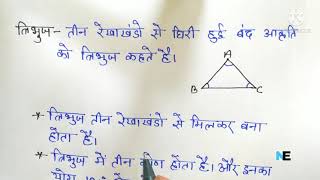 त्रिभुज - तीन रेखाखंडो से घिरी हुई बंद आकृति
को त्रिभुज कहते है।
A
B C
* त्रिभुज तीन रेखाखंडो से मिलकर बना
होता है।
* त्रिभुज में तीन कोण होता है। और इनका
योग
NE